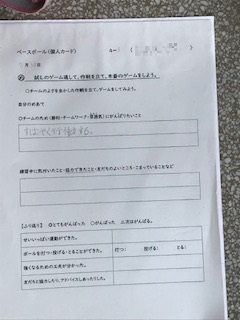 ベースボール（個人カード）
月
試しのゲーム通して、作戦を立て、本番のゲームをしよう。
○チームのよさをあかした作戦を立て、ゲームをしてみよう。
自分のめあて
○チームのため（勝利・チームワーク・雰囲気）にがんばりたいこと
練習中に気付いたこと・協力できたこと・友だちのよいところ・こまっていることなど
【ふり返り】 ◎とてもがんばった ○がんばった △次はがんばる。
せいいっぱい運動ができた。
ボールを打つ・投げる・とることができた。 打つ（ 投げる（ とる（
強くなるための工夫が分かった。
友だちと協力したり、アドバイスしあったりした。